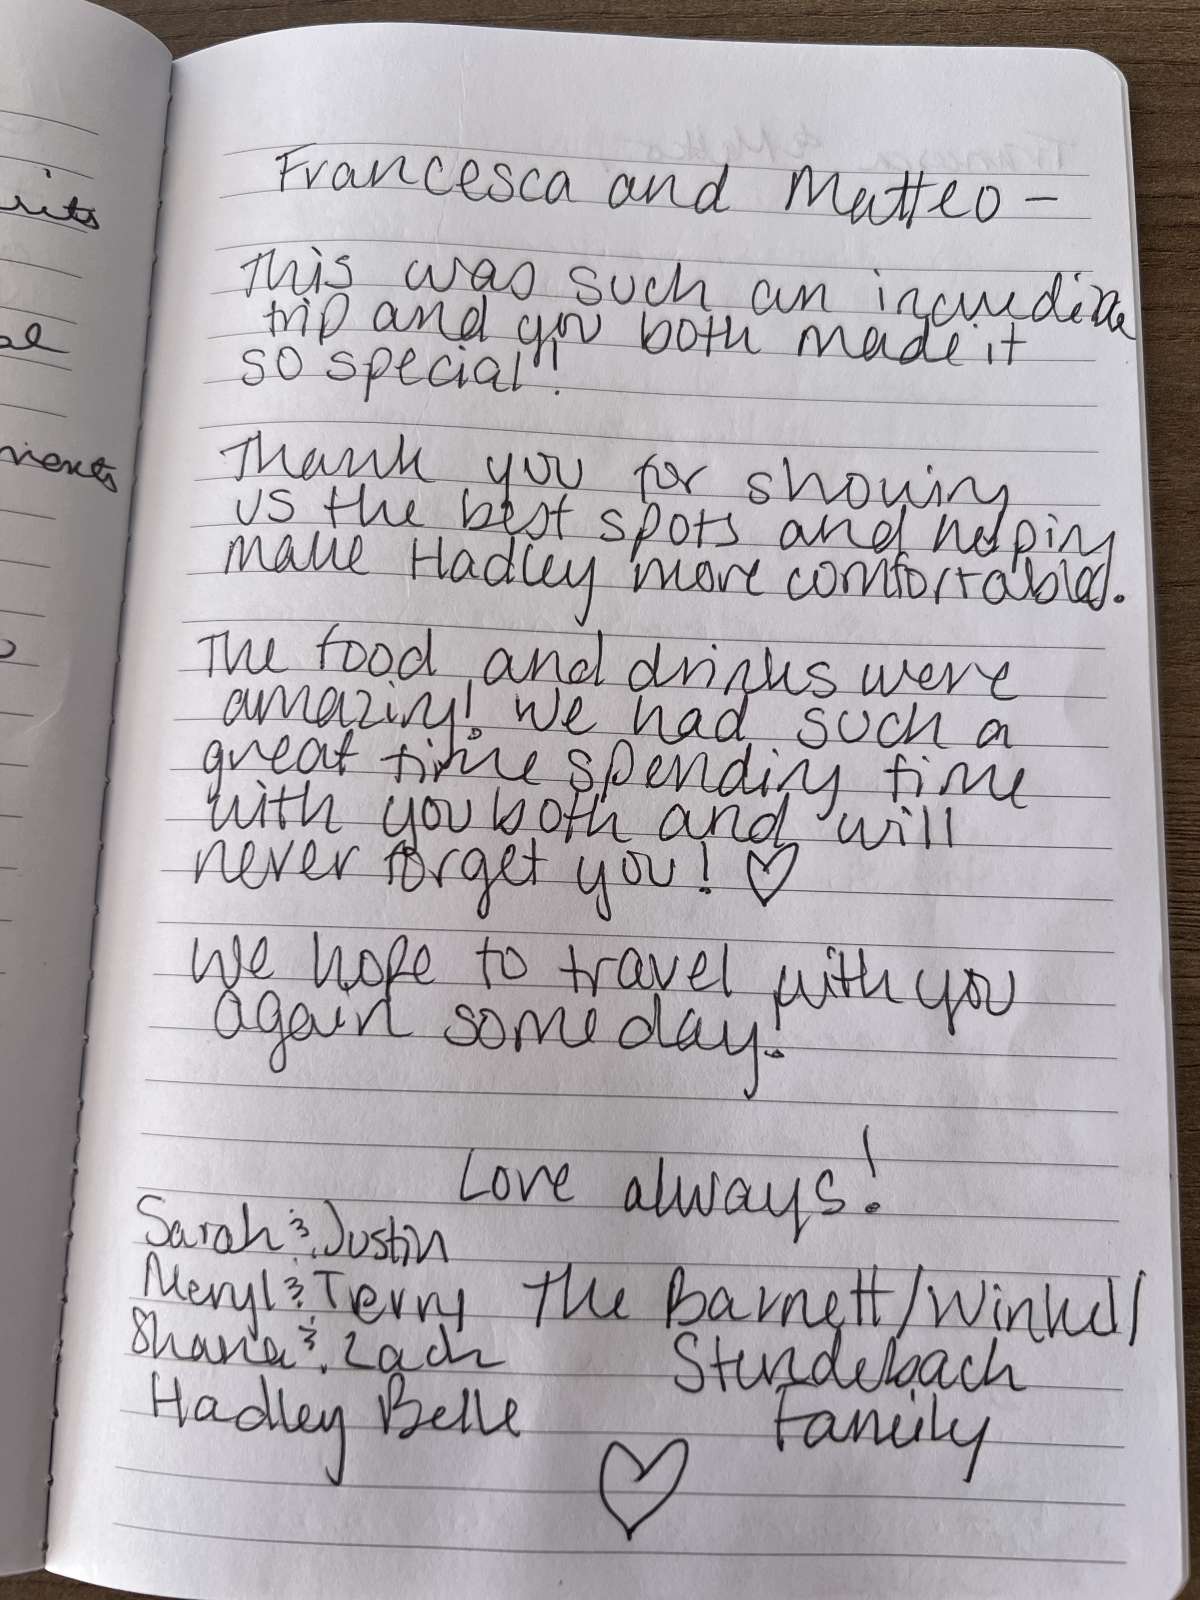 Francesca and Matteo –
This was such an incredible
trip and you both made it
so special!!
Thank you for showing
us the best spots and helping
make Hadley more comfortable.
The food and drinks were
amazing! We had such a
great time spending time
with you both and will
never forget you! ♡
We hope to travel with you
again someday!
Love always!
Sarah & Justin
Meryl & Terry The Barnett/Winkel/
Shana & Zach Stundebach
Hadley Belle Family
♡